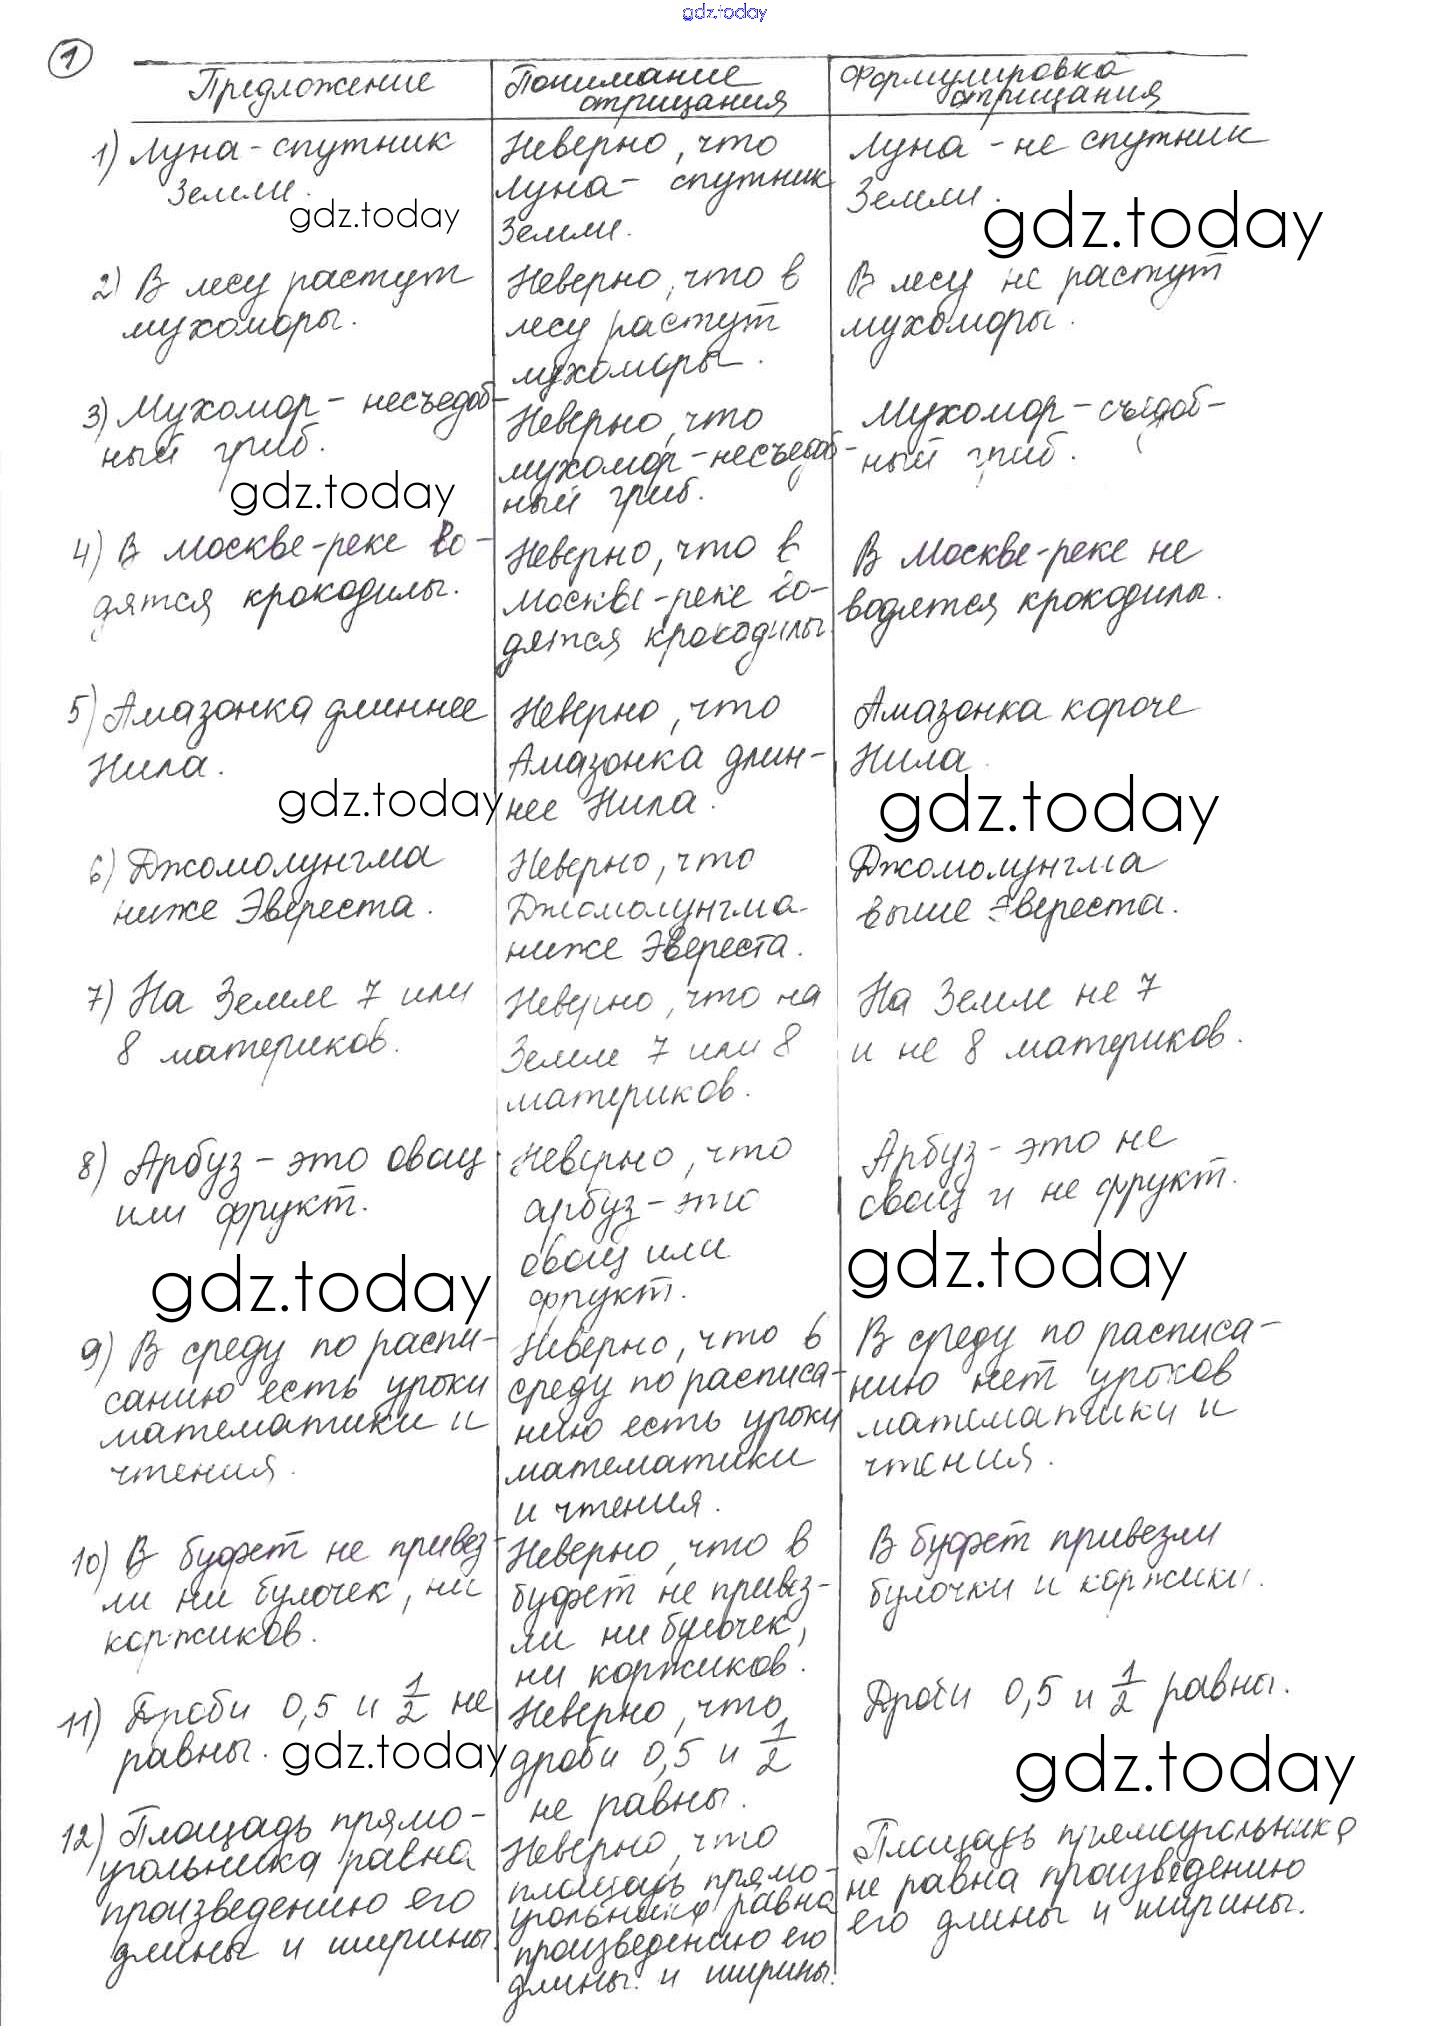 gdz.today
1
Предложение
Понимание отрицания
Формулировка отрицания
1) Луна - спутник
Земли.
Неверно, что
Луна - спутник
Земли.
Луна - не спутник
Земли.
gdz.today
gdz.today
2) В лесу растут
мухоморы.
Неверно, что в
лесу растут
мухоморы.
В лесу не растут
мухоморы.
3) Мухомор - несъедоб-
ный гриб.
Неверно, что
мухомор - несъедоб-
ный гриб.
Мухомор - съедоб-
ный гриб.
gdz.today
4) В Москве-реке во-
дятся крокодилы.
Неверно, что в
Москве-реке во-
дятся крокодилы
В Москве-реке не
водятся крокодилы.
5) Амазонка длиннее
Нила.
Неверно, что
Амазонка длин-
нее Нила.
Амазонка короче
Нила.
gdz.today
gdz.today
6) Джомолунгма
ниже Эвереста.
Неверно, что
Джомолунгма
ниже Эвереста.
Джомолунгма
выше Эвереста.
7) На Земле 7 или
8 материков.
Неверно, что на
Земле 7 или 8
материков.
На Земле не 7
и не 8 материков.
8) Арбуз - это овощ
или фрукт.
Неверно, что
арбуз - это
овощ или
фрукт.
Арбуз - это не
овощ и не фрукт.
gdz.today
gdz.today
9) В среду по распи-
санию есть уроки
математики и
чтения.
Неверно, что в
среду по расписа-
нию есть уроки
математики
и чтения.
В среду по расписа-
нию нет уроков
математики и
чтения.
10) В буфет не привез-
ли ни булочек, ни
коржиков.
Неверно, что в
буфет не привез-
ли ни булочек,
ни коржиков.
В буфет привезли
булочки и коржики.
11) Дроби 0,5 и 1/2 не
равны.
Неверно, что
дроби 0,5 и 1/2
не равны.
Дроби 0,5 и 1/2 равны.
gdz.today
gdz.today
12) Площадь прямо-
угольника равна
произведению его
длины и ширины.
Неверно, что
площадь прямо-
угольника равна
произведению его
длины и ширины.
Площадь прямоугольника
не равна произведению
его длины и ширины.